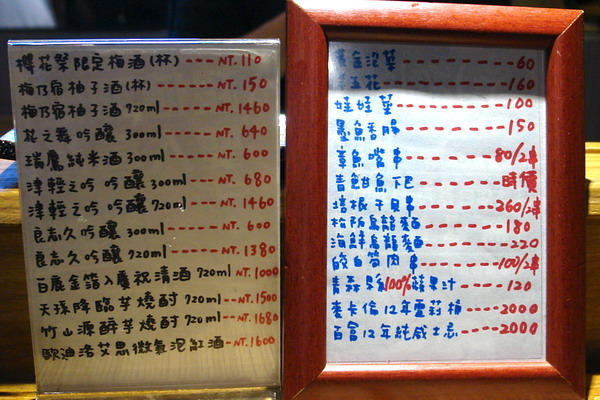 櫻花祭限定梅酒(杯)---NT. 110
梅乃宿柚子酒(杯)---NT. 150
梅乃宿柚子酒 720ml---NT. 1460
花之舞吟釀 300ml---NT. 640
瑞鷹純米酒 300ml---NT. 600
津輕之吟 吟釀 300ml---NT. 680
津輕之吟 吟釀 720ml---NT. 1460
良志久吟釀 300ml---NT. 600
良志久吟釀 720ml---NT. 1380
百鹿金箔入慶祝清酒 720ml NT. 1000
天孫降臨芋燒酎 720ml--NT. 1500
竹山源醉芋燒酎 720ml--NT. 1680
歐迪洛艾思微氣泡紅酒-NT. 1600
黃金泡菜--------60
五花--------160
娃娃菜--------100
墨魚香腸------150
章魚嘴串------80/2串
青魽魚下巴----時價
培根干貝串----260/2串
松阪烏龍麵----180
海鮮烏龍麵----220
皎白筍肉串----100/2串
青森縣100%蘋果汁---120
麥卡倫12年雪莉桶---2000
百富12年純威士忌---2000